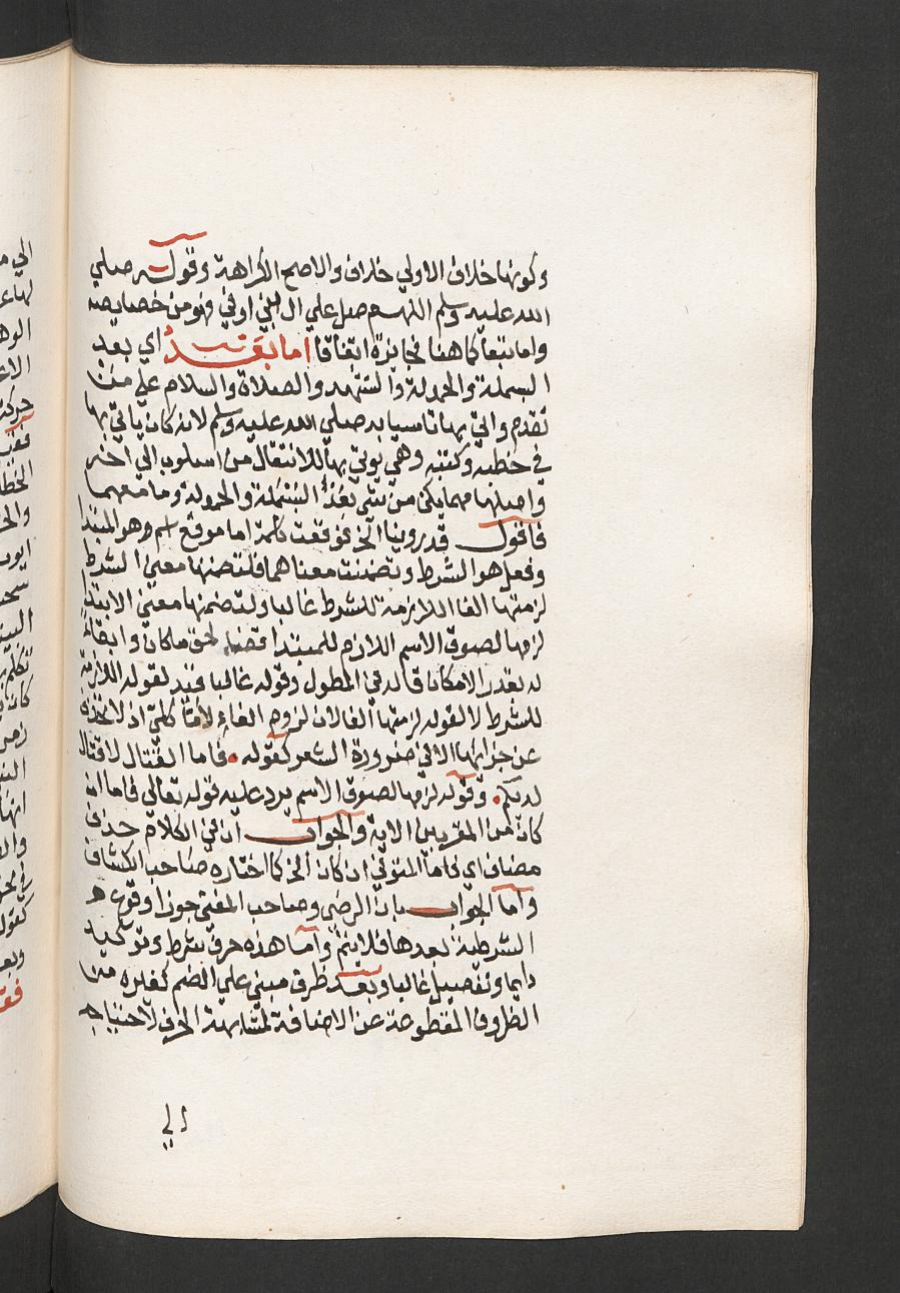 وكونها خلاف الاولي خلاف والاصح الكراهة وقوله صلي
الله عليه وسلم اللهم صل علي ال ابي اوفي فهو من خصايصه
واما تبعا كما هنا فجائزة اتفاقا اما بعد اي بعد
البسملة والحمدلة والتشهد والصلاة والسلام علي من
تقدم واتي بها تاسيا به صلي الله عليه وسلم لانه كان ياتي بها
في خطبه وكتبه وهي يوتي بها للانتقال من اسلوب الي اخر
واصلها مهما يكن من شي بعد البسملة والحمدلة وما معهما
فاقول قد روينا الخ فوقعت كلمة اما موقع اسم وهو المبتدا
وفعل هو الشرط وتضمنت معناهما فلتضمنها معني الشرط
لزمتها الفا اللازمة للشرط غالبا ولتضمنها معني الابتدا
لزمها لصوق الاسم اللازم للمبتدا قضا لحق ما كان وابقاء
له بقدر الامكان قاله في المطول وقوله غالبا قيد لقوله اللازمة
للشرط لا لقوله لزمتها الفا لان لزوم الفاء لاما كلي اذ لا تحذف
عن جزايها الا في ضرورة الشعر كقوله • فاما القتال لا قتال
لديكم • وقوله لزمها لصوق الاسم يرد عليه قوله تعالي فاما ان
كان من المقربين الاية والجواب ان في الكلام حذف
مضاف اي فاما المتوفي ان كان الخ كما اختاره صاحب الكشاف
واما الجواب بان الرضي وصاحب المغني جوزا وقوع
الشرطية بعدها فلا يتم واما هذه حرف شرط وتوكيد
دايما وتفصيل غالبا وبعد ظرف مبني علي الضم كغيره من
الظروف المقطوعة عن الاضافة لمشابهة الحرف لاحتياجه
الي